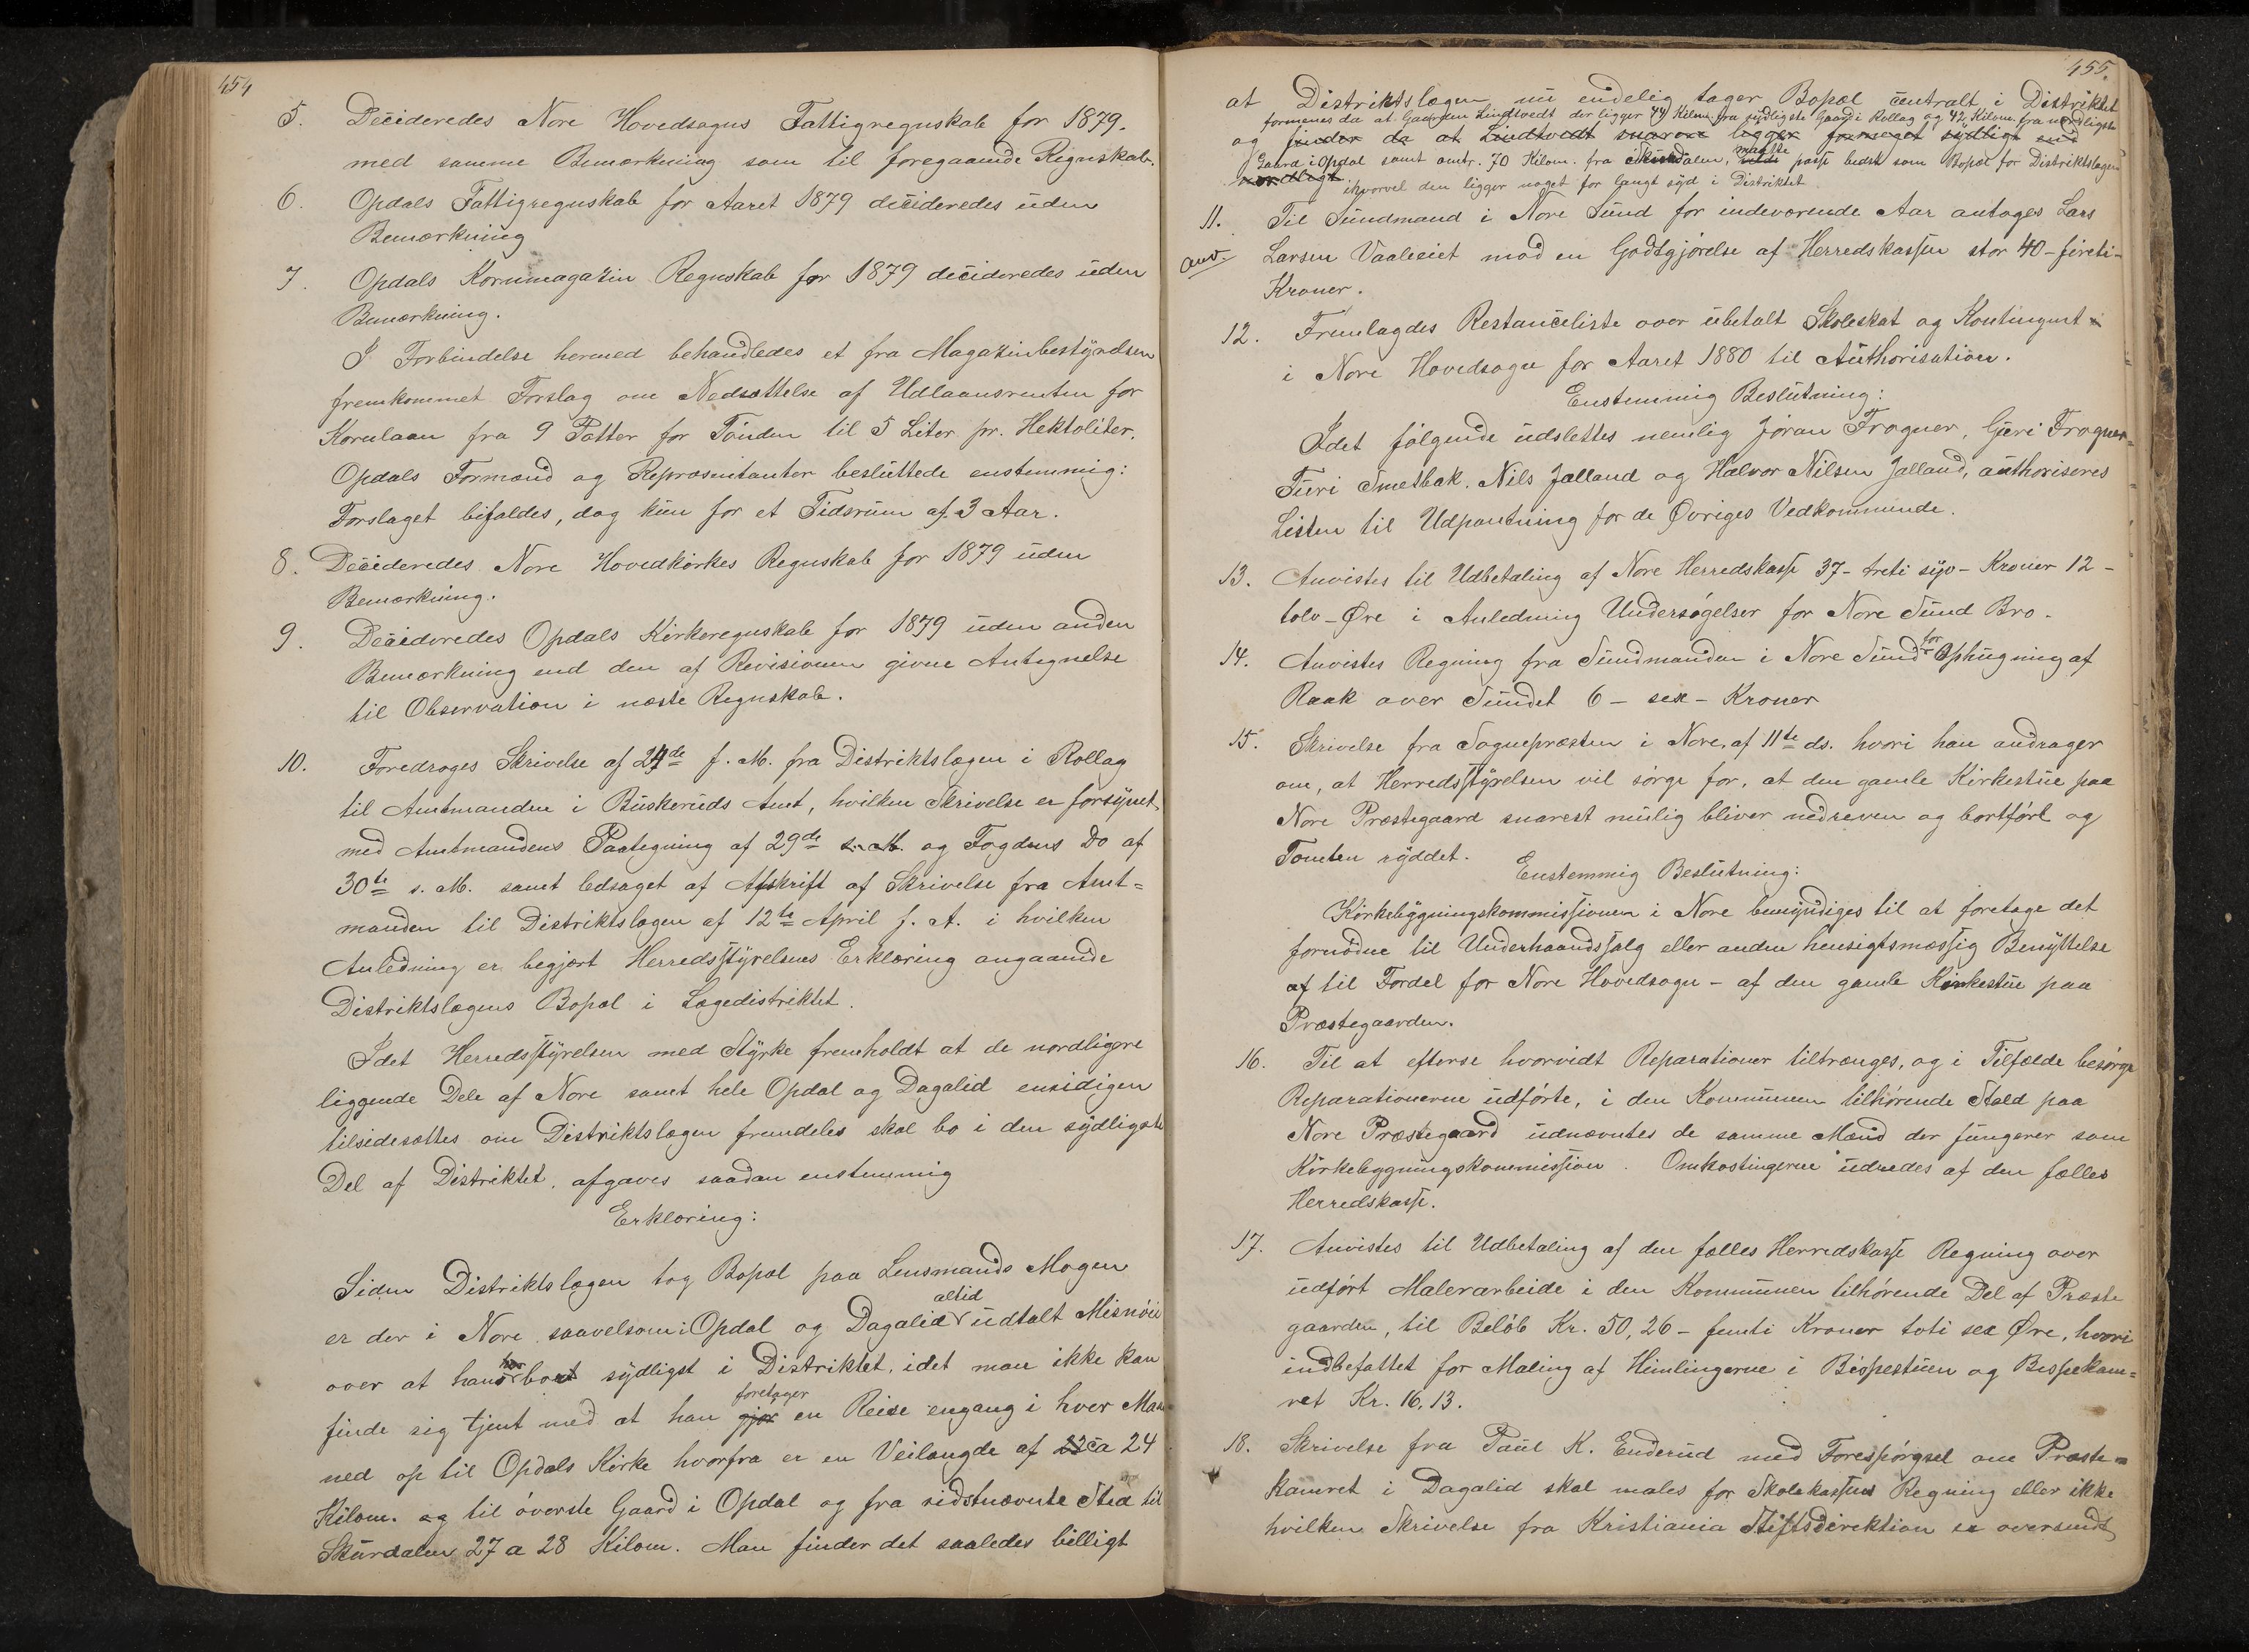 454
5. Decideredes Nore Hovedsogns Fattigregnskab for 1879.
med samme Bemærkning som til foregaaende Regnskab.
6. Opdals Fattigregnskab for Aaret 1879 decideredes uden
Bemærkning
7. Opdals Kornmagazin Regnskab for 1879 decideredes uden
Bemærkning.
I Forbindelse hermed behandledes et fra Magazinbestyrelsen
fremkommet Forslag om Nedsættelse af Udlaansrenten for
Kornlaan fra 9 Potter for Tønden til 5 Liter pr. Hektoliter.
Opdals Formænd og Repræsentanter besluttede enstemmig:
Forslaget bifaldes, dog kun for et Tidsrum af 3 Aar.
8. Decideredes Nore Hovedkirkes Regnskab for 1879 uden
Bemærkning.
9. Decideredes Opdals Kirkeregnskab for 1879 uden anden
Bemærkning end den af Revisionen givne Antegnelse
til Observation i næste Regnskab.
10. Foredroges Skrivelse af 24de f. M. fra Distriktslægen i Rollag
til Amtmanden i Buskeruds Amt, hvilken Skrivelse er forsynet
med Amtmandens Paategning af 29de s. M. og Fogdens Do af
30te s. M. samt ledsaget af Afskrift af Skrivelse fra Amt=
manden til Distriktslægen af 12te April f. A. i hvilken
Anledning er begjært Herredsstyrelsens Erklæring angaaende
Distriktslægens Bopæl i Lægedistriktet.
Idet Herredsstyrelsen med Styrke fremholdt at de nordligere
liggende Dele af Nore samt hele Opdal og Dagalid ensidigen
tilsidesættes om Distriktslægen fremdeles skal bo i den sydligste
Del af Distriktet, afgaves saadan enstemmig
Erklæring:
Siden Distriktslægen tog Bopæl paa Lensmands Mogen
er der i Nore saavelsom i Opdal og Dagalid altid udtalt Misnøie
over at han har boet sydligst i Distriktet, idet man ikke kan
finde sig tjent med at han gjør foretager en Reise engang i hver Maa
ned op til Opdals Kirke hvorfra er en Veilængde af ca 24
Kilom. og til øverste Gaard i Opdal og fra sidstnævnte Sted til
Skurdalen 27 a 28 Kilom. Man finder det saaledes billigt
455.
at Distriktslægen nu endelig tager Bopæl centralt i Distriktet
formenes da at Gaarden Lindtvedt der ligger 44 Kilom. fra sydligste Gaard i Rollag og 42 Kilom. fra nordligste
og finder da at Lindtvedt snarere ligger formeget sydligt end
Gaard i Opdal samt omtr. 70 Kilom. fra Skurdalen, maatte passe bedst som Bopæl for Distriktslægen
nordligt ihvorvel den ligger noget for langt syd i Distriktet
11. Til Sundmand i Nore Sund for indeværende Aar antages Lars
anv. Larsen Vaalieiet mod en Godtgjørelse af Herredskassen stor 40 - firti -
Kroner.
12. Fremlagdes Restanceliste over ubetalt Skoleskat og Kontingent
i Nore Hovedsogn for Aaret 1880 til Authorisation.
Enstemmig Beslutning:
Idet følgende udslettes nemlig Jøran Frogner, Guri Frogner=
Turi Smetbak. Nils Jalland og Halvor Nilsen Jalland, authoriseres
Listen til Udpantning for de Øvriges Vedkommende.
13. Anvistes til Udbetaling af Nore Herredskasse 37 - treti syv - Kroner 12 -
tolv - Øre i Anledning Undersøgelser for Nore Sund Bro.
14. Anvistes Regning fra Sundmanden i Nore Sund for Ophugning af
Raak over Sundet 6 - sex - Kroner
15. Skrivelse fra Sognepræsten i Nore, af 11te ds. hvori han andrager
om, at Herredsstyrelsen vil sørge for, at den gamle Kirkestue paa
Nore Præstegaard snarest mulig bliver nedreven og bortført og
Tomten ryddet.
Enstemmig Beslutning:
Kirkebygningskommissionen i Nore bemyndiges til at foretage det
fornødne til Underhaandssalg eller anden hensigtsmæssig Benyttelse
af til Fordel for Nore Hovedsogn - af den gamle Kirkestue paa
Præstegaarden.
16. Til at efterse hvorvidt Reparationer tiltrænges, og i Tilfælde besørge
Reparationerne udførte, i den Kommunen tilhørende Stald paa
Nore Præstegaard udnævntes de samme Mænd der fungerer som
Kirkebygningskommission. Omkostingerne udredes af den fælles
Herredskasse.
17. Anvistes til Udbetaling af den fælles Herredskasse Regning over
udført Malerarbeide i den Kommunen tilhørende Del af Præste
gaarden, til Beløb Kr. 50,26 - femti Kroner toti sex Øre, hvori
indbefattet for Maling af Himlingerne i Bispestuen og Bispekam=
ret Kr. 16,13.
18. Skrivelse fra Paul K. Enderud med Forespørgsel om Præste=
kamret i Dagalid skal males for Skolekassens Regning eller ikke
hvilken Skrivelse fra Kristiania Stiftsdirektion er oversendt